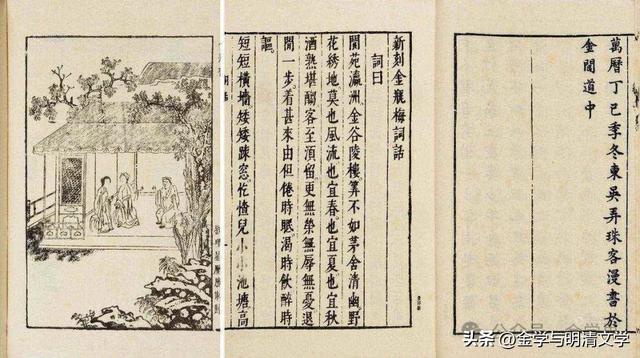 萬曆丁巳季冬東吳弄珠客漫書於
金閶道中
新刻金瓶梅詞話
詞曰
閬苑瀛洲金谷陵樓筭不如茅舍清幽野
花綉地莫也風流也宜春也宜夏也宜秋
酒熟堪酌客至湏留更無榮無辱無憂退
閒一步着甚來由但倦時眠渴時飲醉時
謳
短短橫墻矮矮踈窓忔㥮兒小小池塘高
头条 @金学与明清文学